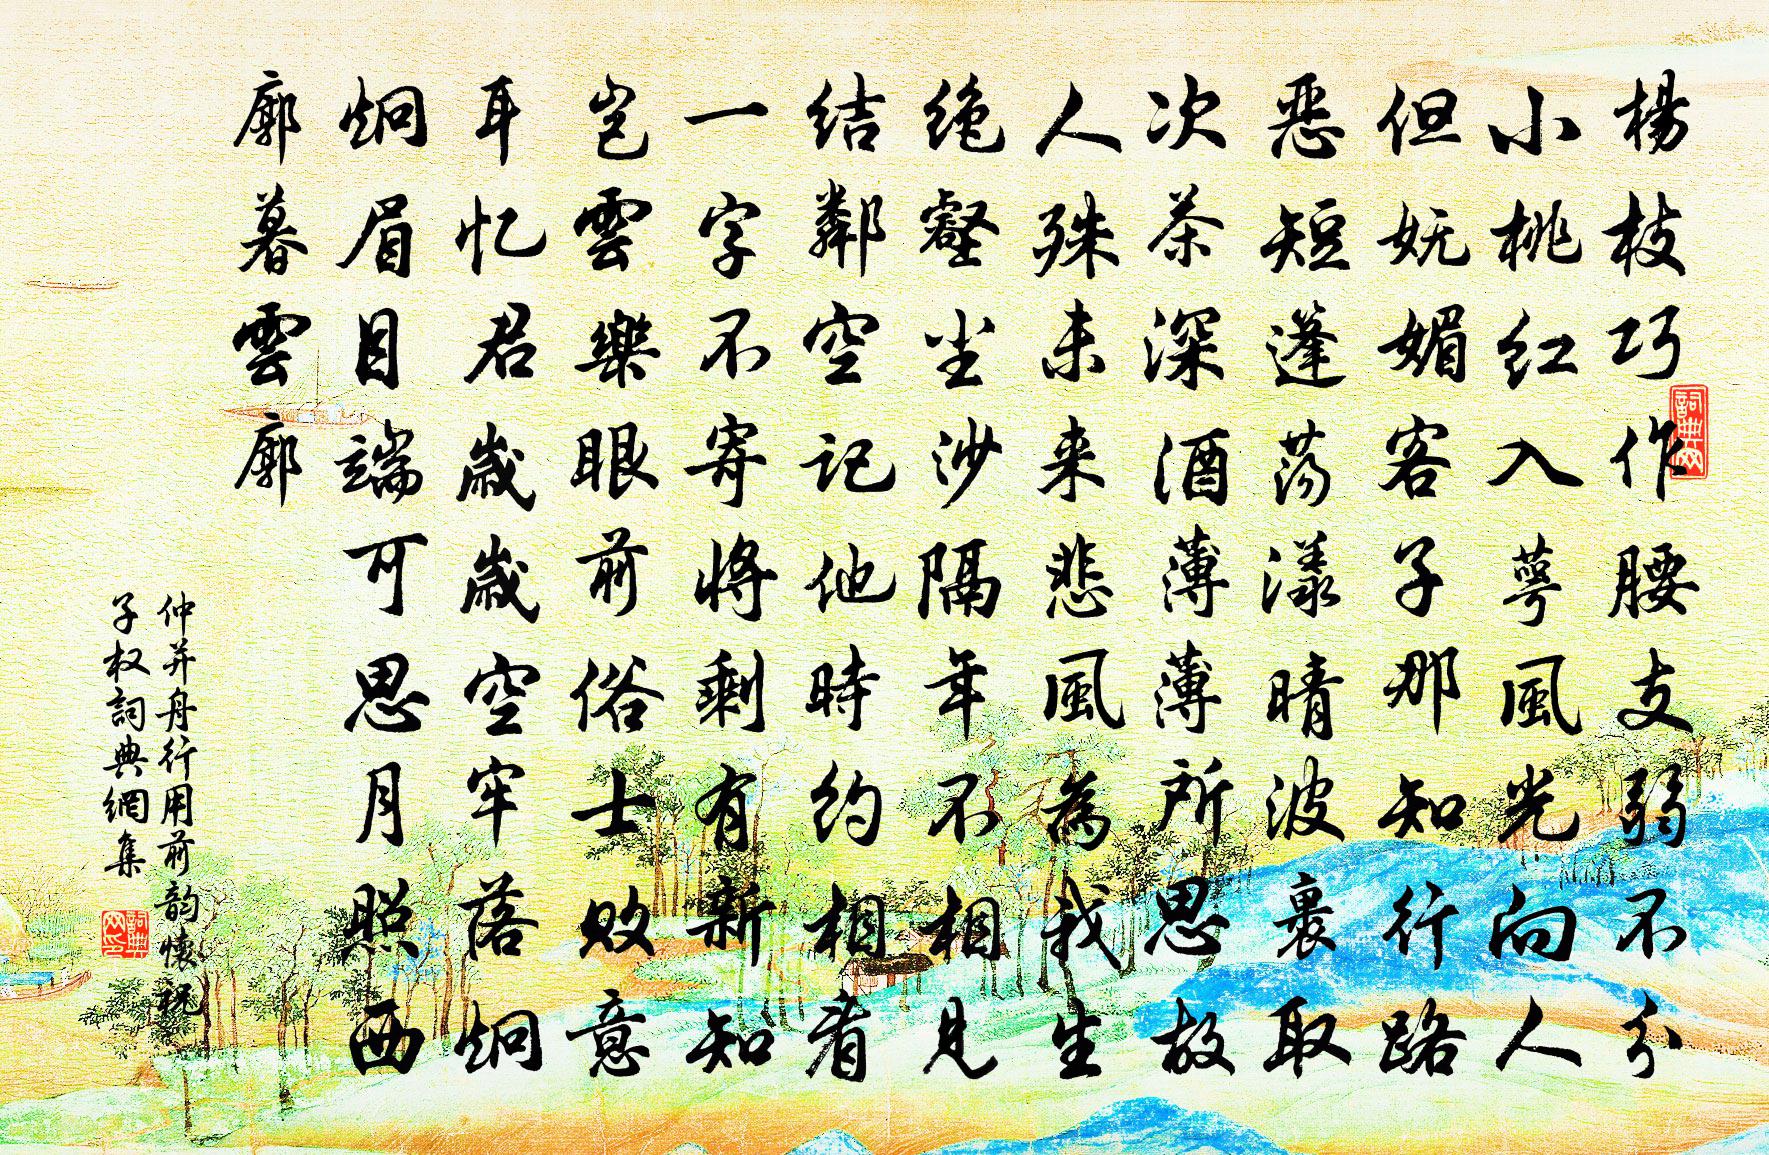 楊枝巧作腰支弱不分
小桃红入萼風光向人
但妩媚客子那知行路
惡短蓬荡漾晴波裏取
次茶深酒薄薄所思故
人殊未来悲風為我生
绝壑尘沙隔年不相見
结鄰空记他時约相看
一字不寄將剩有新知
岂雲樂眼前俗士败意
耳忆君歲歲空牢落炯
炯眉目端可思月照西
廓暮雲廓
仲并舟行用前韵懷祝
子权詞典網集
詞典网
詞典网印